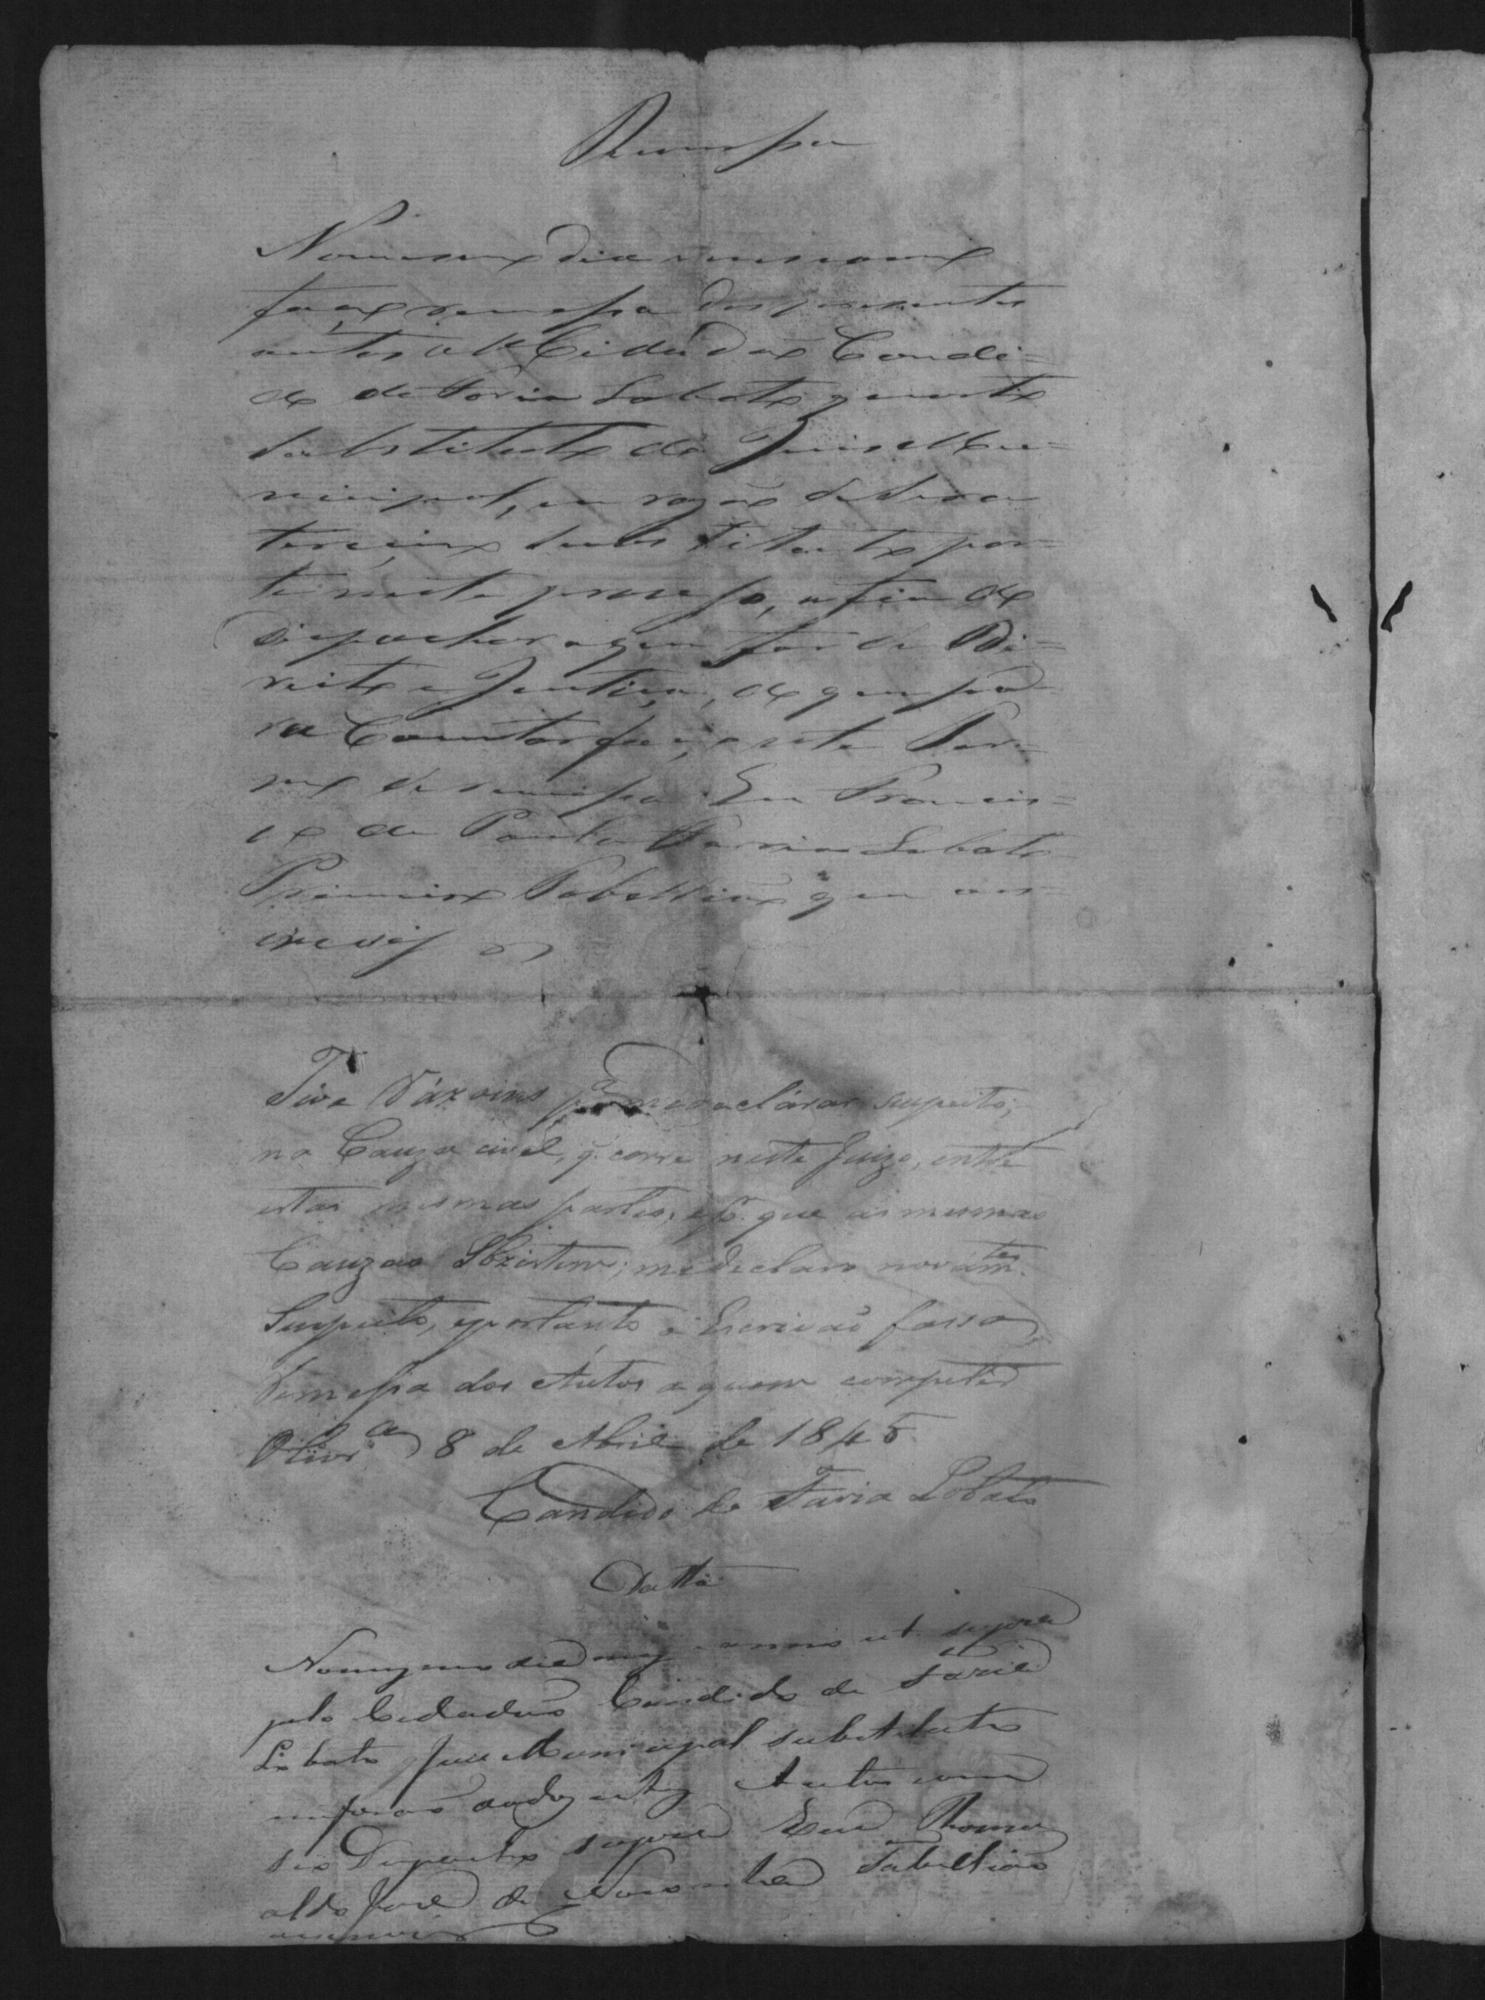 Remessa
No mesmo dia mes e anno
faço remessa dos presentes
autos ao Cidadão Candi=
do de Faria Lobato quarto
Substituto do Juis Mu=
nicipal, em rasão de ser o
terceiro Substituto par=
te neste processo, a fim de
dispachar o que for de Di=
reito e Justiça, do que pa=
ra Constar faço este Ter=
mo de remessa. Eu Francis=
co de Paula Faria Lobato
Primeiro Tabellião que o es=
crevi
Tive razoins pª me declárar suspeito,
na Cauza civel, q. corre neste Juizo, entre
estas mesmas partes, e pr. que as mesmas
Cauzas Ezistem; me declaro novamte.
Suspeito, e portanto o Escrivaõ fassa
remessa dos Autos a quem competir
Olivrª 8 de Abril de 1845
Candido de Faria Lobato
Datta
No mesmo dia mes e anno ut supra
pelo Cidadão Candido de Faria
Lobato Juis Municipal substituto
me foraõ dados estes Autos com
seo Despacho supra Eu Romu
aldo José de Tabelliaõ